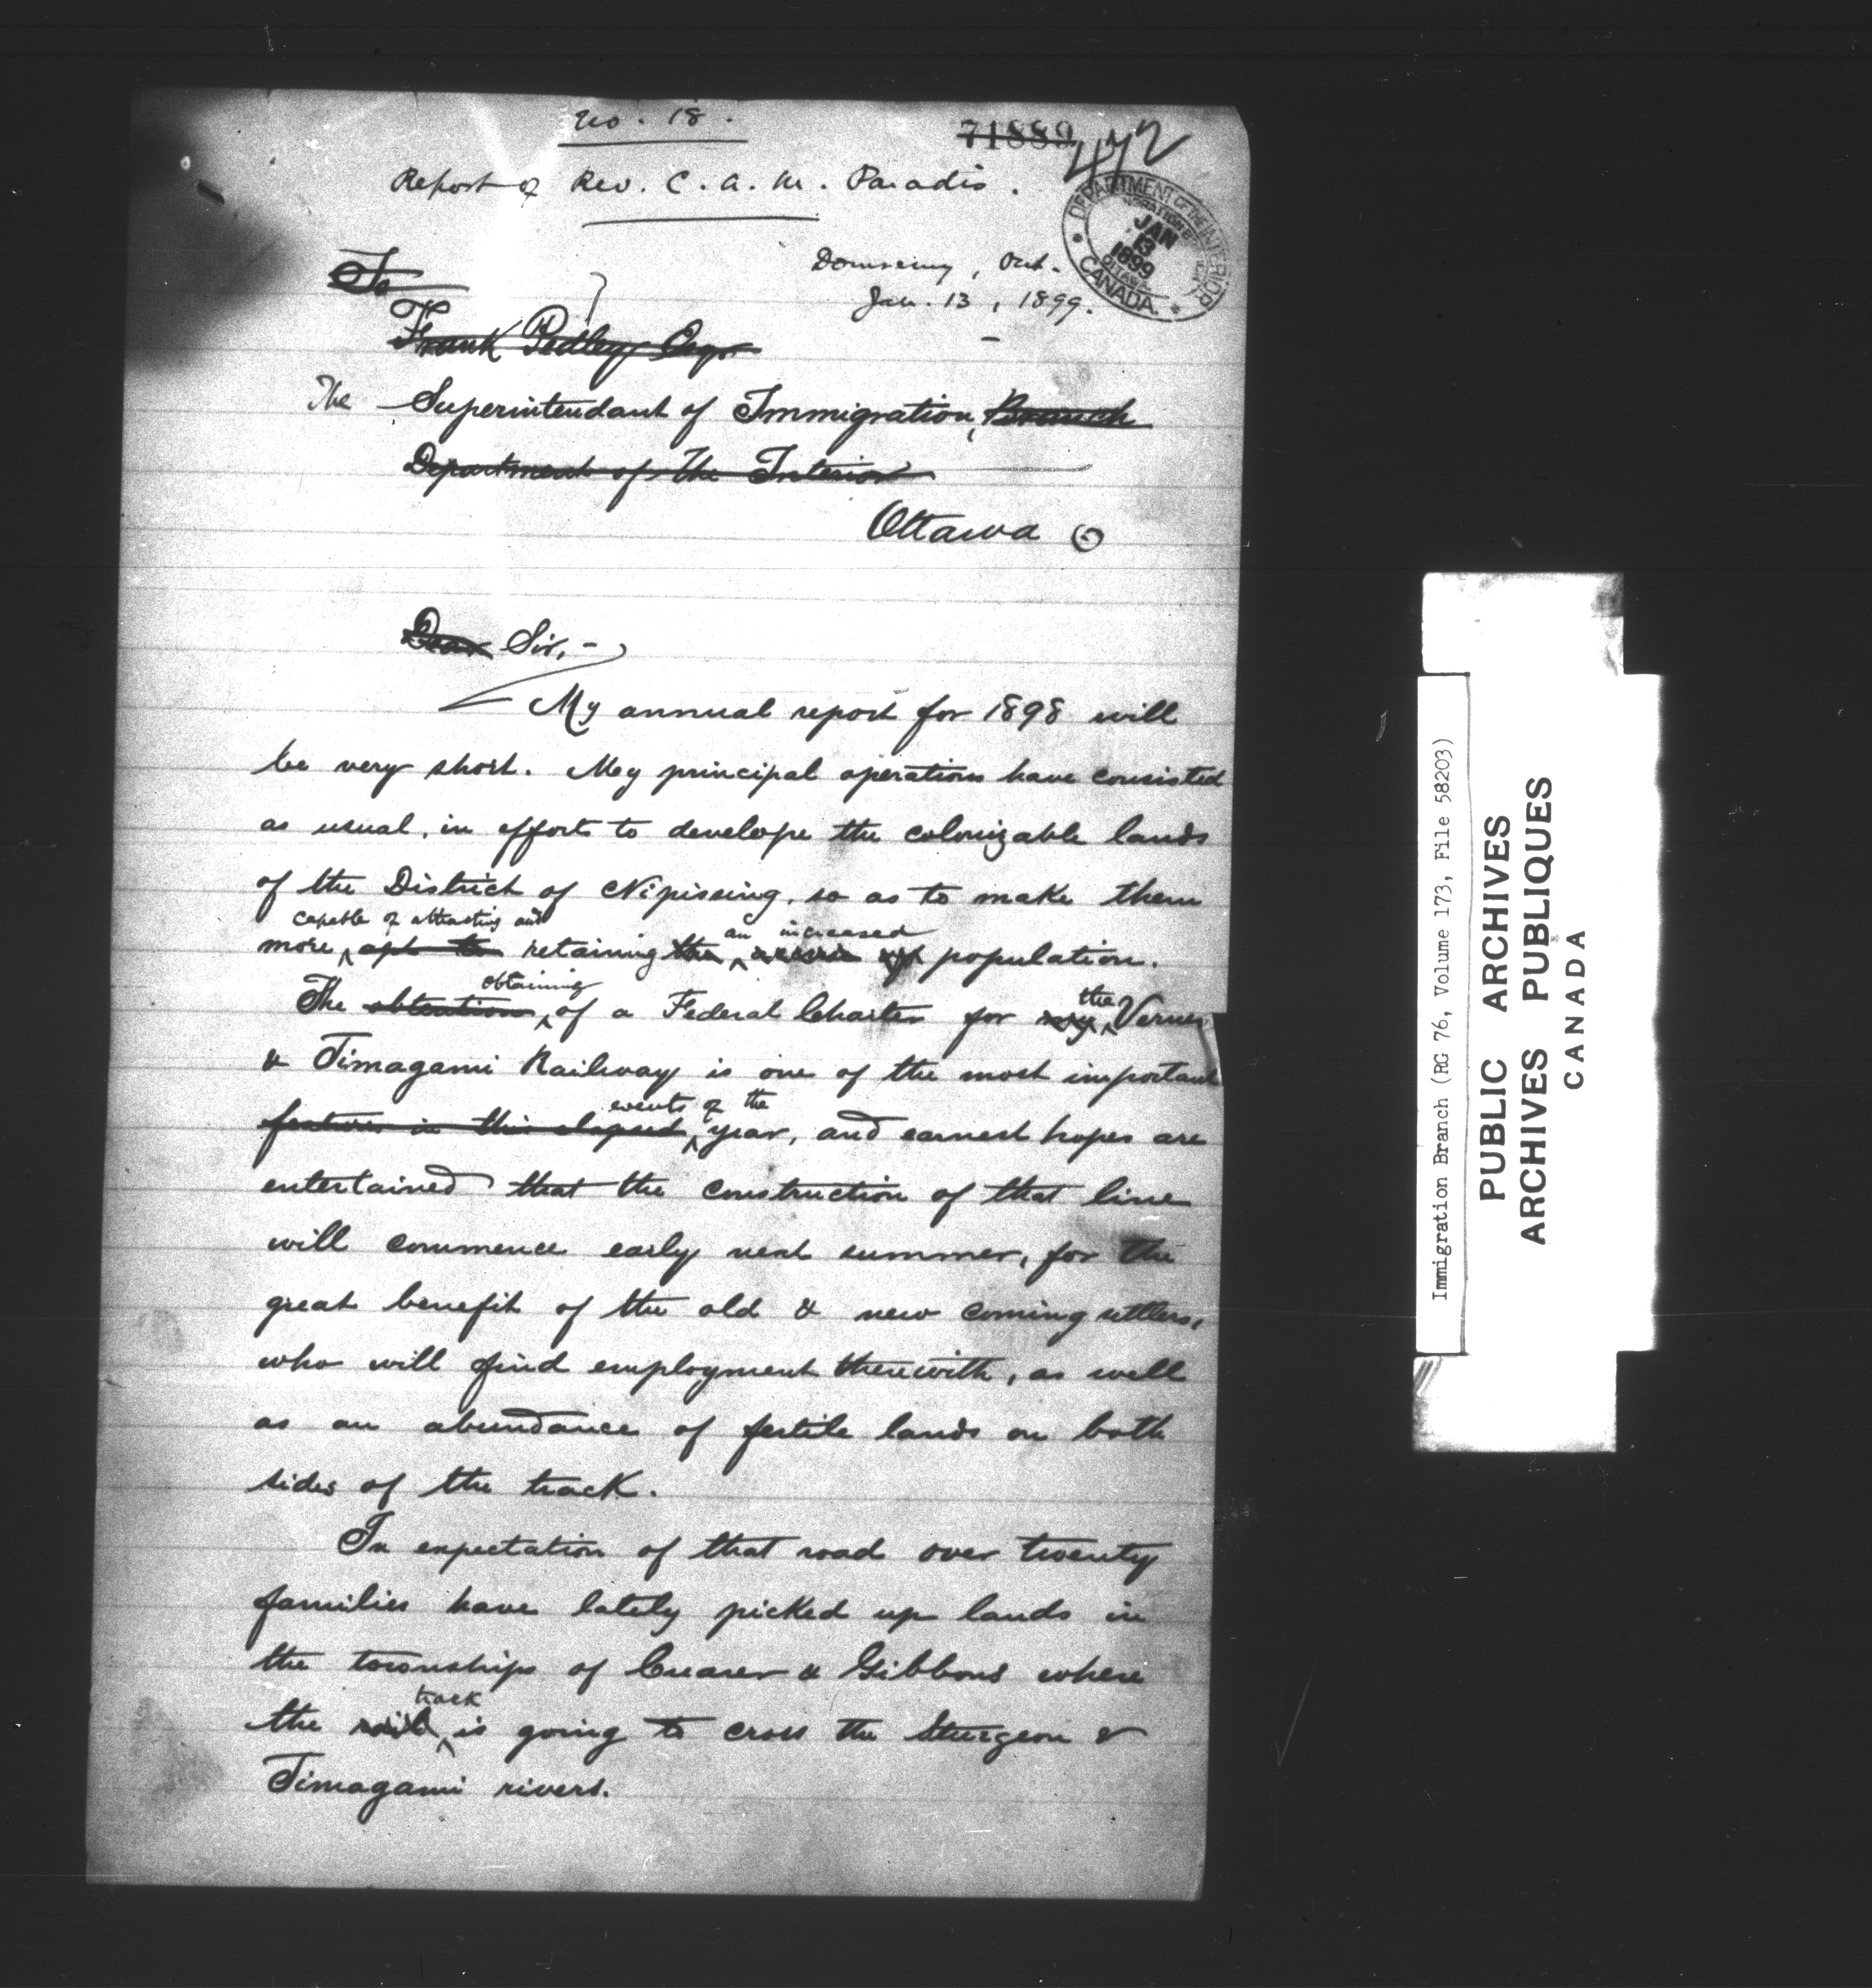 No. 18.
71889
472
Report of Rev. C. A. M. Paradis.
DEPARTMENT OF THE INTERIOR
JAN
13
1899
OTTAWA
CANADA.
To
Domremy, Ont.
Jan. 13, 1899.
Frank Pedley Esqr
The Superintendant of Immigration, Branch
Department of the Interior
Ottawa
Dear Sir,-
My annual report for 1898 will
be very short. My principal operations have consisted
as usual, in efforts to develope the colonizable lands
of the District of Nipissing, so as to make them
capable of attracting and
an increased
more apt to retaining the population.
obtaining
the
The obtention of a Federal Charter for my Verner
& Timagami Railway is one of the most important
events of the
features in this elapsed year, and earnest hopes are
entertained that the construction of that line
will commence early next summer, for the
great benefit of the old & new coming settlers,
who will find employment therewith, as well
as an abundance of fertile lands on both
sides of the track.
In expectation of that road over twenty
families have lately picked up lands in
the townships of Crearer & Gibbons where
track
the rail is going to cross the Sturgeon &
Timagami rivers.
Immigration Branch (RG 76, Volume 173, File 58203)
PUBLIC ARCHIVES
ARCHIVES PUBLIQUES
CANADA